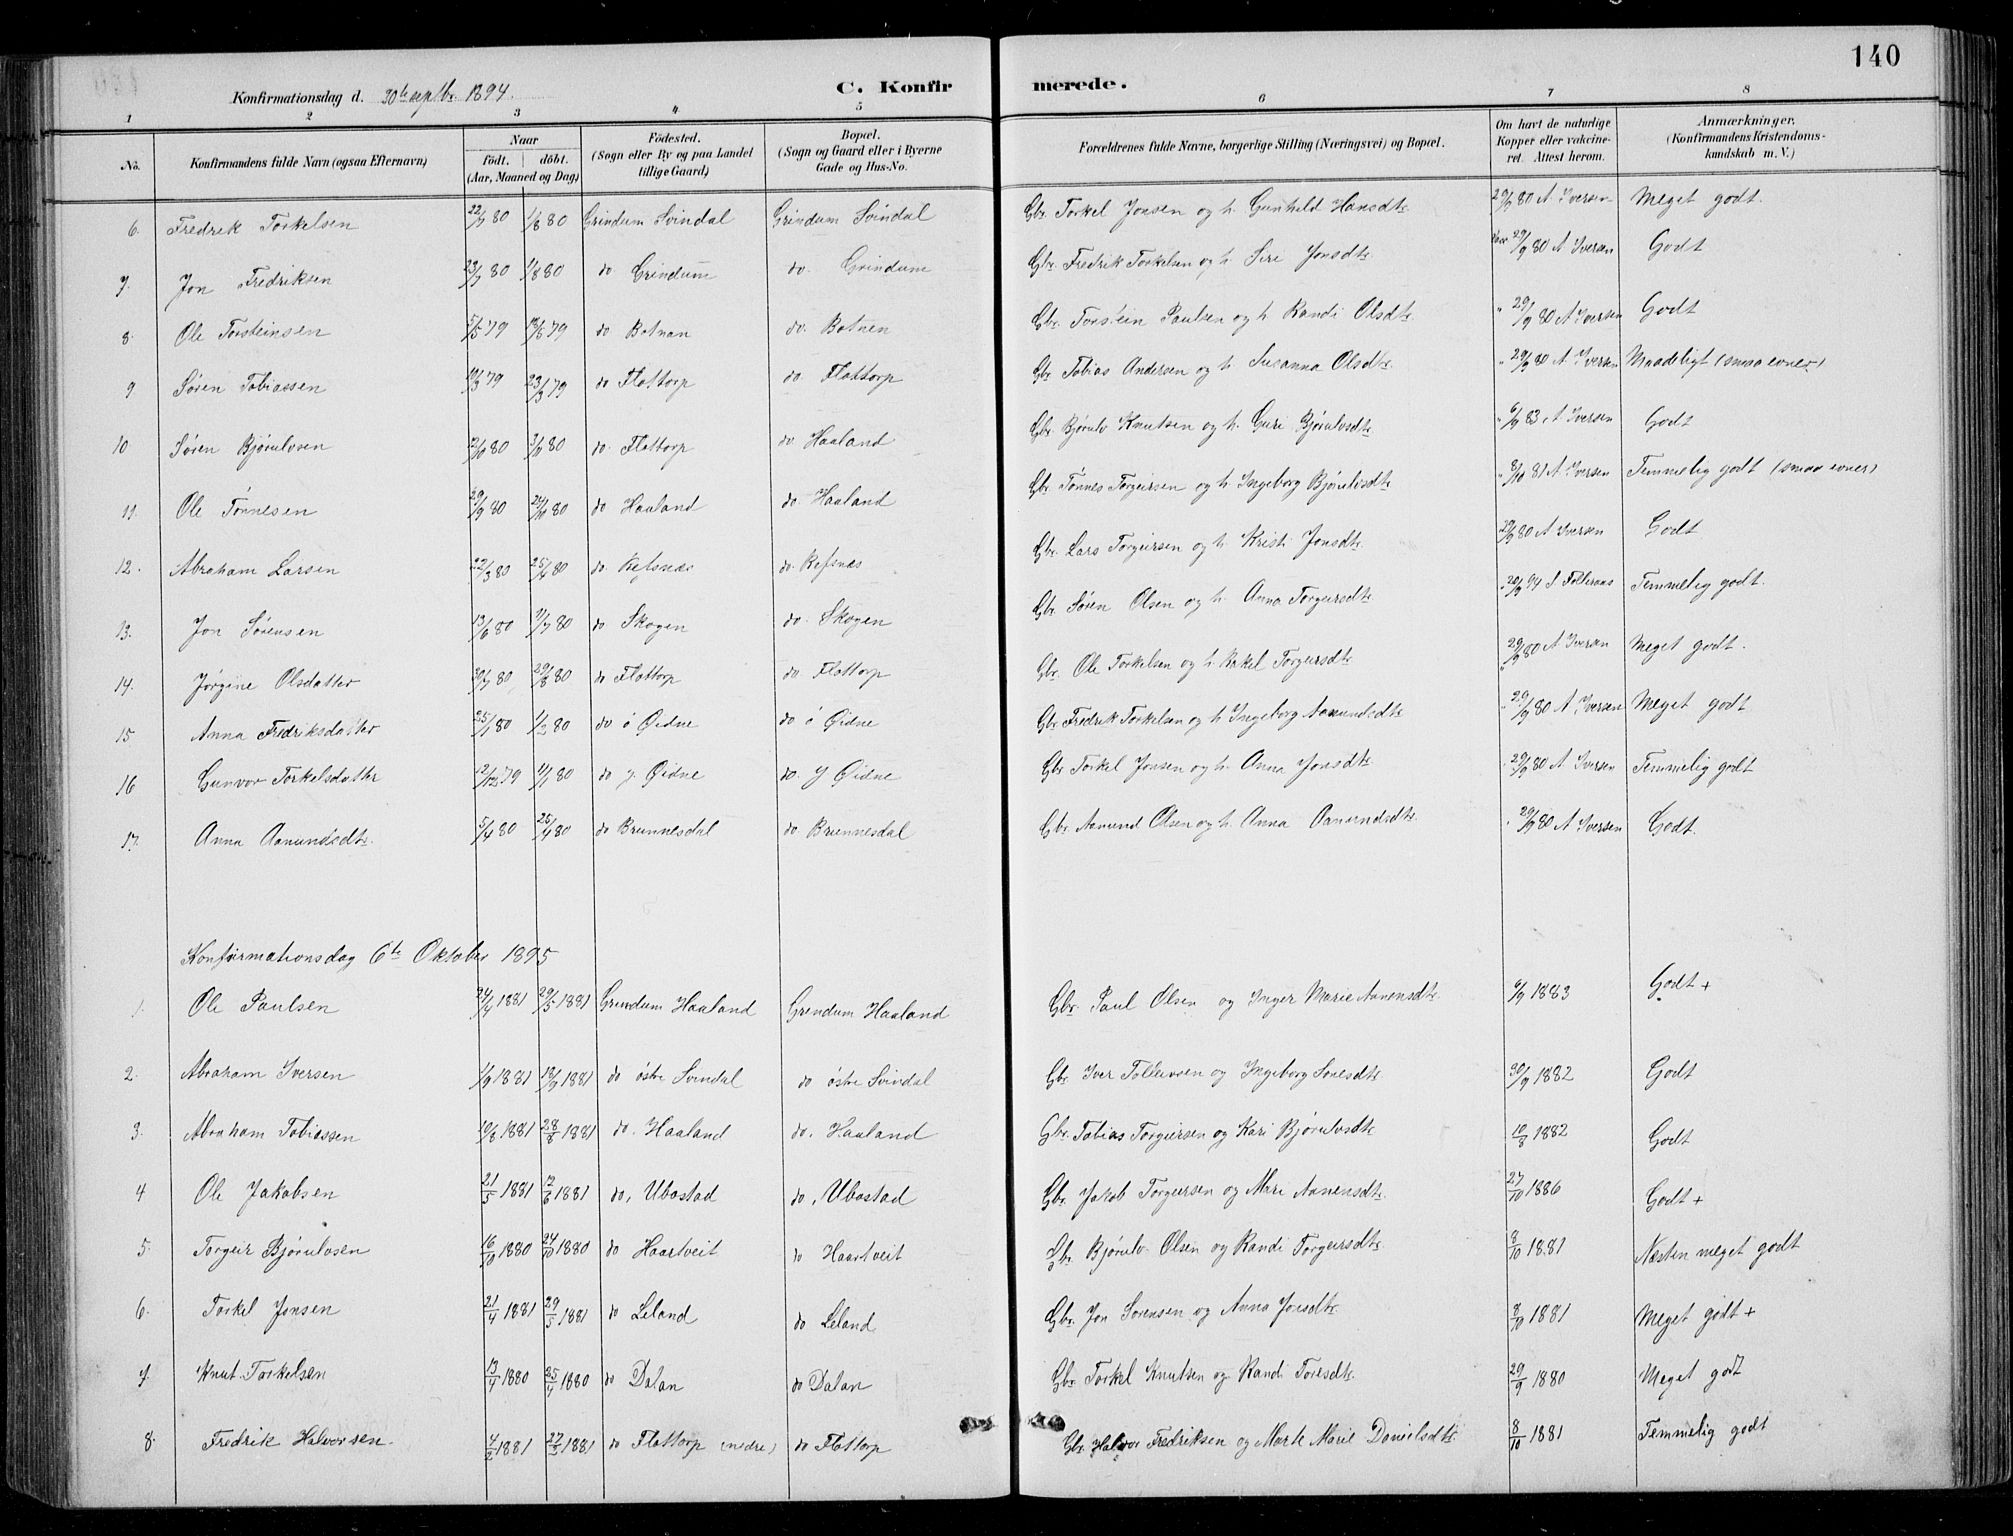 140
Konfirmationsdag d. 30te septbr. 1894. C. Konfirmerede.
1 2 3 4 5 6 7 8
No. Konfirmandens fulde Navn (ogsaa Efternavn) Naar födt. döbt. (Aar, Maaned og Dag) Födested. (Sogn eller By og paa Landet tillige Gaard) Bopæl. (Sogn og Gaard eller i Byerne Gade og Hus-No. Forældrenes fulde Navne, borgerlige Stilling (Næringsvei) og Bopæl. Om havt de naturlige Kopper eller vakcineret. Attest herom. Anmærkninger. (Konfirmandens Kristendomskundskab m. V.)
6. Fredrik Torkelsen 22/7 80 1/8 80 Grindum Svindal Grindum Svindal Gbr. Torkel Jonsen og h. Gunhild Hansdtr. 29/9 80 A Iversen Meget godt.
7. Jon Fredriksen 23/7 80 1/8 80 do Grindum do. Grindum Gbr. Fredrik Torkelsen og h. Siri Jonsdtr. 29/9 80 A Iversen Godt
8. Ole Torsteinsen 5/5 79 18/5 79 do Botnan do. Botnen Gbr. Torstein Paulsen og h. Randi Olsdtr. " 29/9 80 A Iversen Godt
9 Søren Tobiassen 10/3 79 23/3 79 do Flottorp do. Flottorp Gbr. Tobias Andersen og h. Susanna Olsdtr. " 29/9 80 A Iversen Maadeligt (smaa evner)
10 Søren Bjørulvsen 2/10 80 3/10 80 do. Flottorp do Haaland Gbr. Bjørulv Knutsen og h. Guri Bjørulvsdtr. " 6/9 83 A Iversen Godt
11. Ole Tønnesen 29/9 80 24/10 80 do Haaland do. Haaland Gbr. Tønnes Torgeirsen og h. Ingeborg Bjørulvsdtr. " 8/10 81 A. Iversen Temmelig godt (smaa evner)
12. Abraham Larsen 22/3 80 25/4 80 do Refsnæs do. Refsnæs Gbr. Lars Torgeirsen og h. Kristi Jonsdtr. 29/9 80 A Iversen Godt
13. Jon Sørensen 13/6 80 11/7 80 do Skogen do. Skogen Gbr. Søren Olsen og h. Anna Torgeirsdtr. 20/9 94 Temmelig godt.
14. Jørgine Olsdatter 30/7 80 29/8 80 do Flottorp do Flottorp Gbr. Ole Torkelsen og h. Torgeirsdtr. 29/9 80 A Iversen Meget godt.
15 Anna Fredriksdatter 25/1 80 1/2 80 do ö Øidne do ö Øidne Gbr. Fredrik Torkelsen og h. Ingeborg Aanundsdtr. " 29/9 80 A Iversen Meget godt
16 Gunvor Torkelsdatter 12/12 79 11/1 80 do y. Øidne do. y Øidne Gbr. Torkel Jonsen og h. Anna Jonsdtr. " 29/9 80 A Iversen Temmelig godt
17. Anna Aanundsdtr. 5/4 80 25/4 80 do Brunnesdal do Brunnesdal Gbr. Aanund Olsen og h. Anna Aanundsdtr. " 29/9 80 A Iversen Godt.
Konfirmationsdag 6te Oktober 1895
1. Ole Paulsen 24/4 1881 29/5 1881 Grindum Haaland Grendum Haaland Gbr. Paul Olsen og Inger Marie Aanensdtr. 6/9 1883 Godt +
2. Abraham Iversen 1/9 1881 18/9 1881 do østre Svindal do østre Svindal Gbr. Iver Tollevsen og Ingeborg 30/9 1882 Godt
3. Abraham Tobiassen 10/8 1881 28/8 1881 do. Haaland do. Haaland Gbr. Tobias Torgiersen og Kari Bjørulvsdtr. 10/8 1882 Godt
4 Ole Jakobsen 21/5 1881 12/6 1881 do, Ubostad do, Ubostad Gbr. Jakob Torgiersen og Mari Aanensdtr. 27/10 1886 Godt +
5. Torgeir Bjørulvsen 16/10 1880 24/10 1880 do Haartveit do Haartveit Gbr. Bjørulv Olsen og Randi Torgeirsdtr. 8/10 1881 Næsten meget godt
6. Torkel Jonsen 21/4 1881 29/5 1881 do Leland do Leland Gbr. Jon Sørensen og Anna Jonsdtr. 8/10 1881 Meget godt +
7. Knut Torkelsen 13/4 1880 25/4 1880 do Dalan do Dalan Gbr. Torkel Knutsen og Randi Toresdtr. 29/9 1880 Meget godt
8. Fredrik Halvorsen. 4/2 1881 27/3 1881 do Flottorp (nedre) do Flottorp Gbr. Halvor Fredriksen og Marte Marie Danielsdtr. 8/10 1881 Temmelig godt